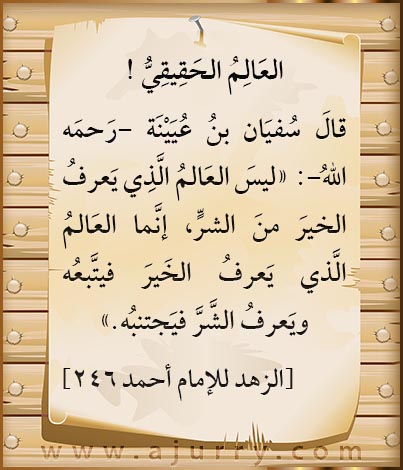 العَالِمُ الحَقِيقِيُّ !
قالَ سُفيَان بنُ عُيَيْنَة -رَحمَه
اللهُ-: «ليسَ العَالمُ الَّذِي يَعرفُ
الخيرَ منَ الشرِّ، إنَّما العَالمُ
الَّذي يَعرفُ الخَيرَ فيتَّبعُه
ويَعرفُ الشَّرَّ فيَجتنبُه.»
[الزهد للإمام أحمد ٢٤٦]
www.ajurry.com